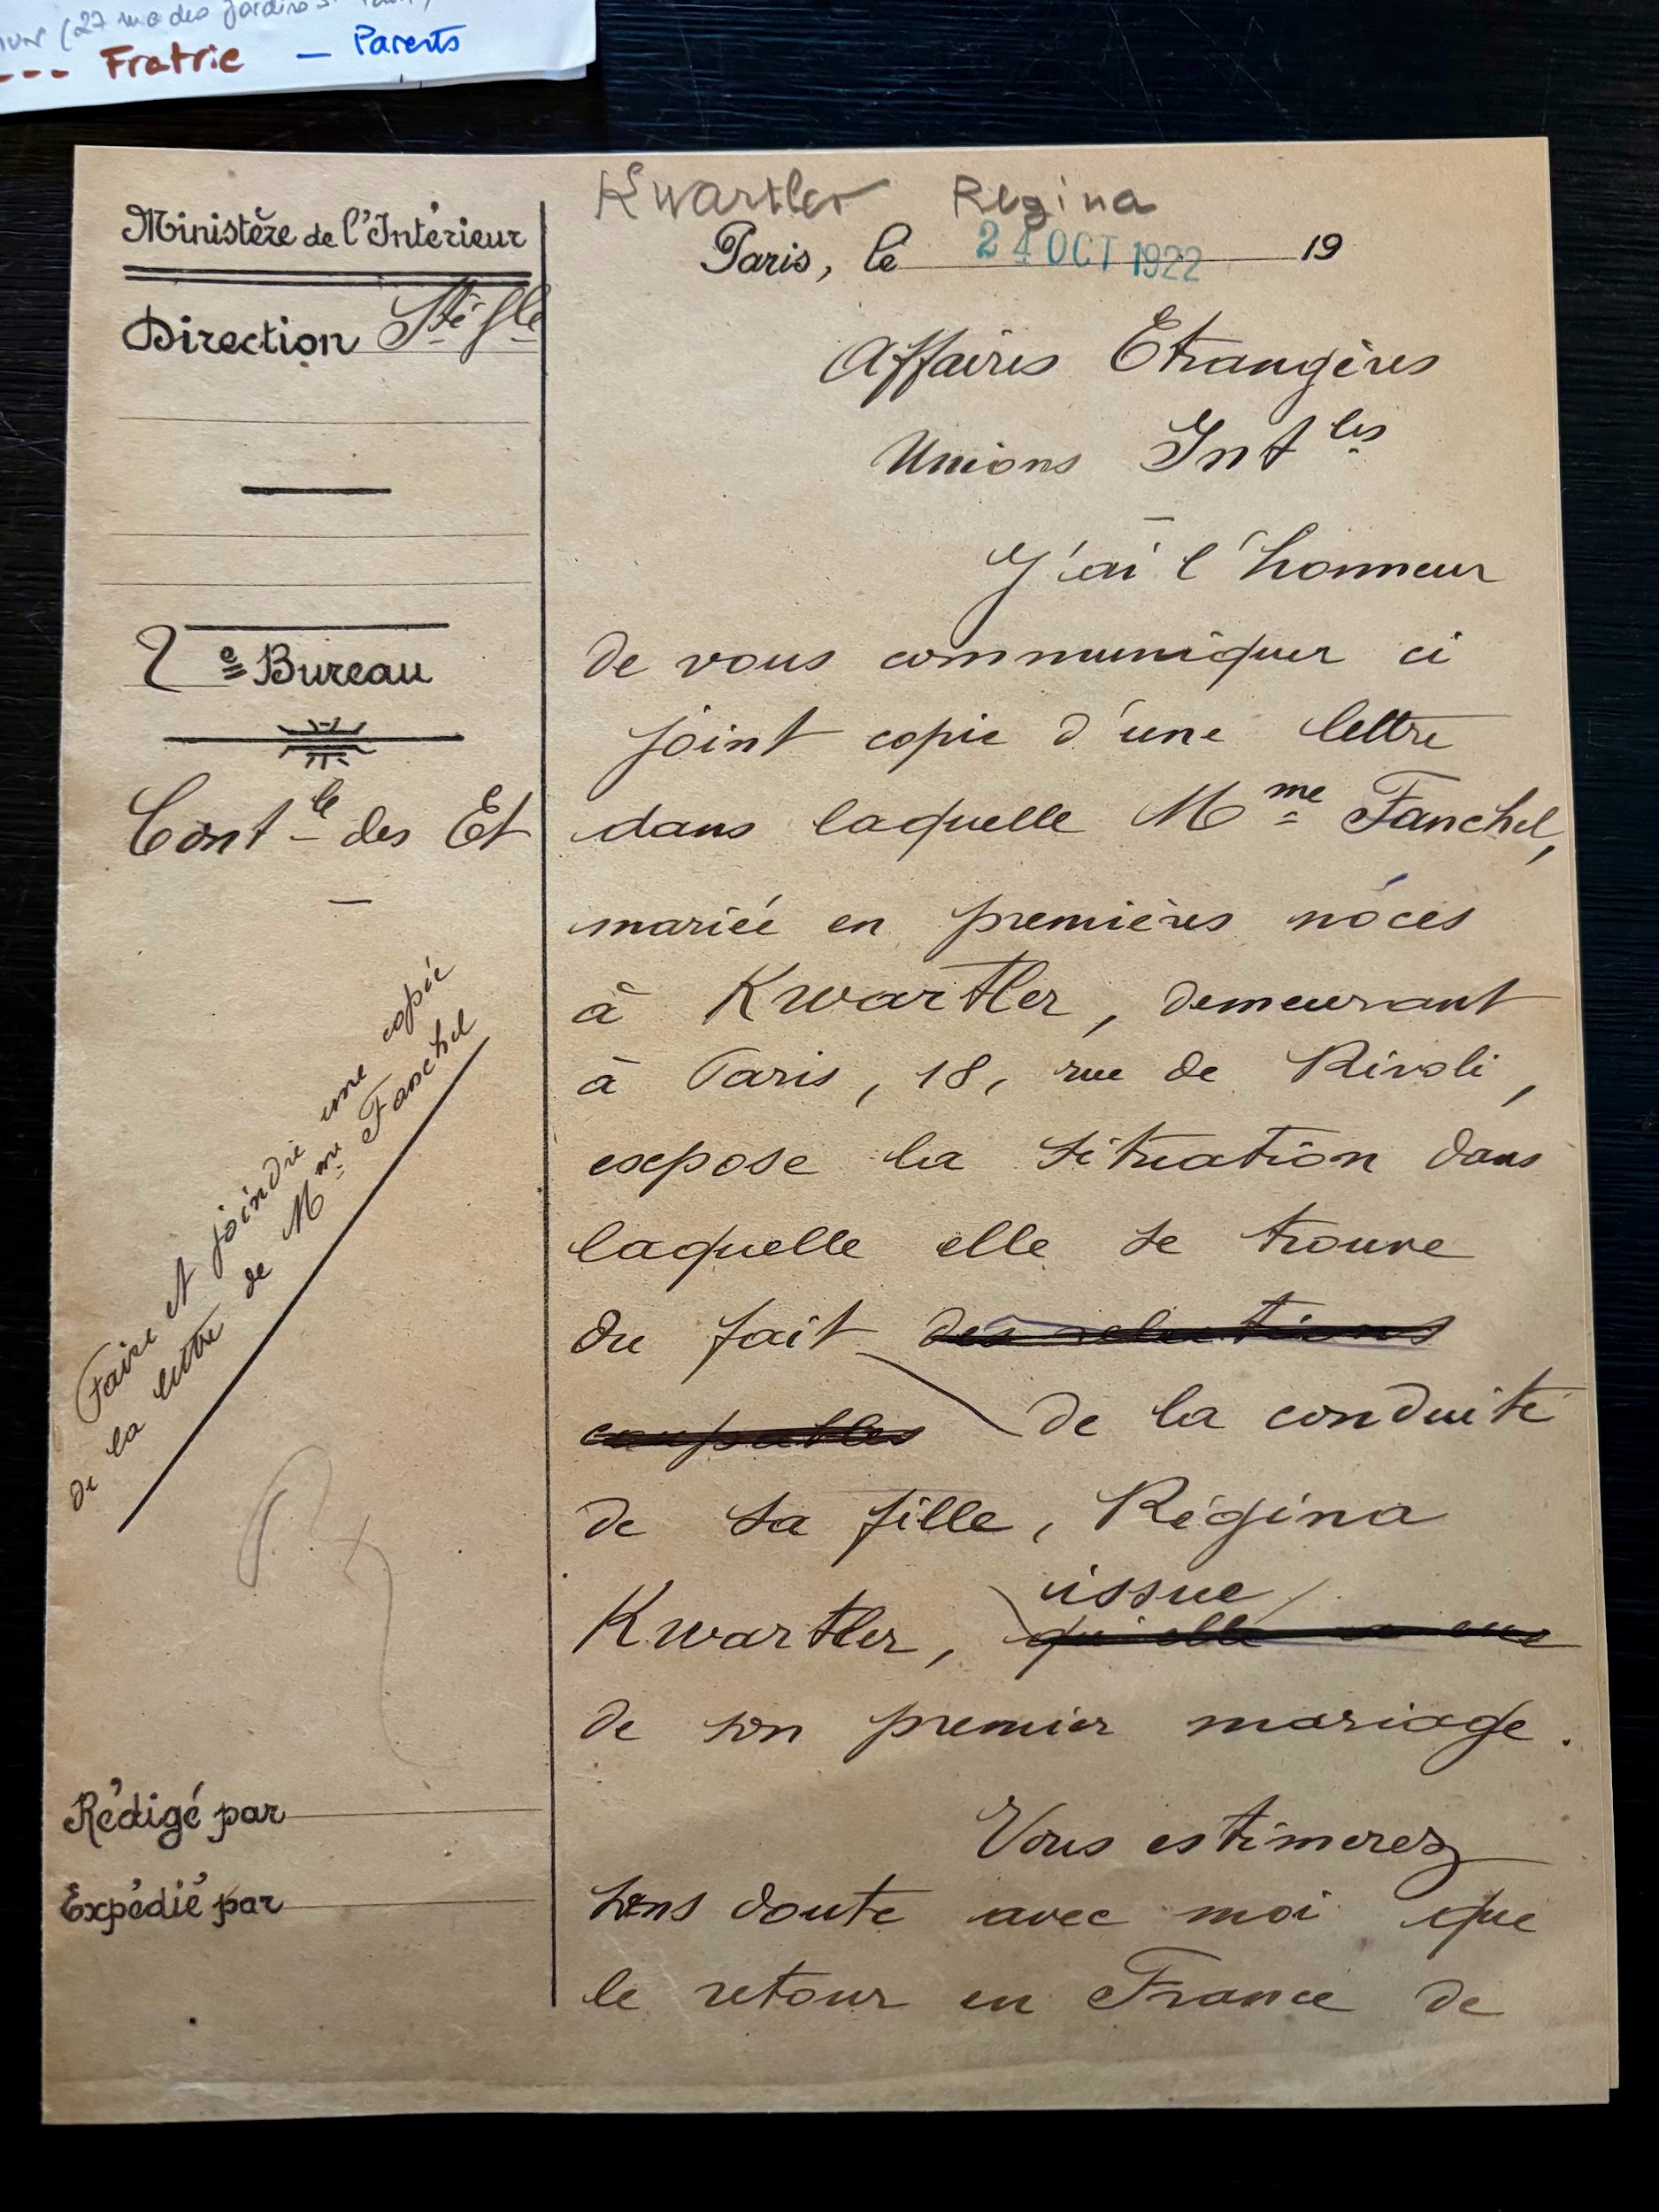 (27 rue des jardins St
--- Fratrie — Parents
Kwartler Regina
Ministère de l'Intérieur
Paris, le 24 OCT 1922 19
Direction Sté Gle
Affaires Etrangères
Unions Intles
J'ai l'honneur
2e Bureau
de vous communiquer ci
joint copie d'une lettre
Contle des Et
dans laquelle Mme Fanchel,
mariée en premières noces
à Kwartler, demeurant
à Paris, 18, rue de Rivoli,
expose la situation dans
laquelle elle se trouve
du fait des relations
coupables de la conduite
de sa fille, Régina
issue
Kwartler, qu'elle a eue
de son premier mariage.
Faire et joindre une copie
de la lettre de Mme Fanchel
Rédigé par
Expédié par
Vous estimerez
sans doute avec moi que
le retour en France de